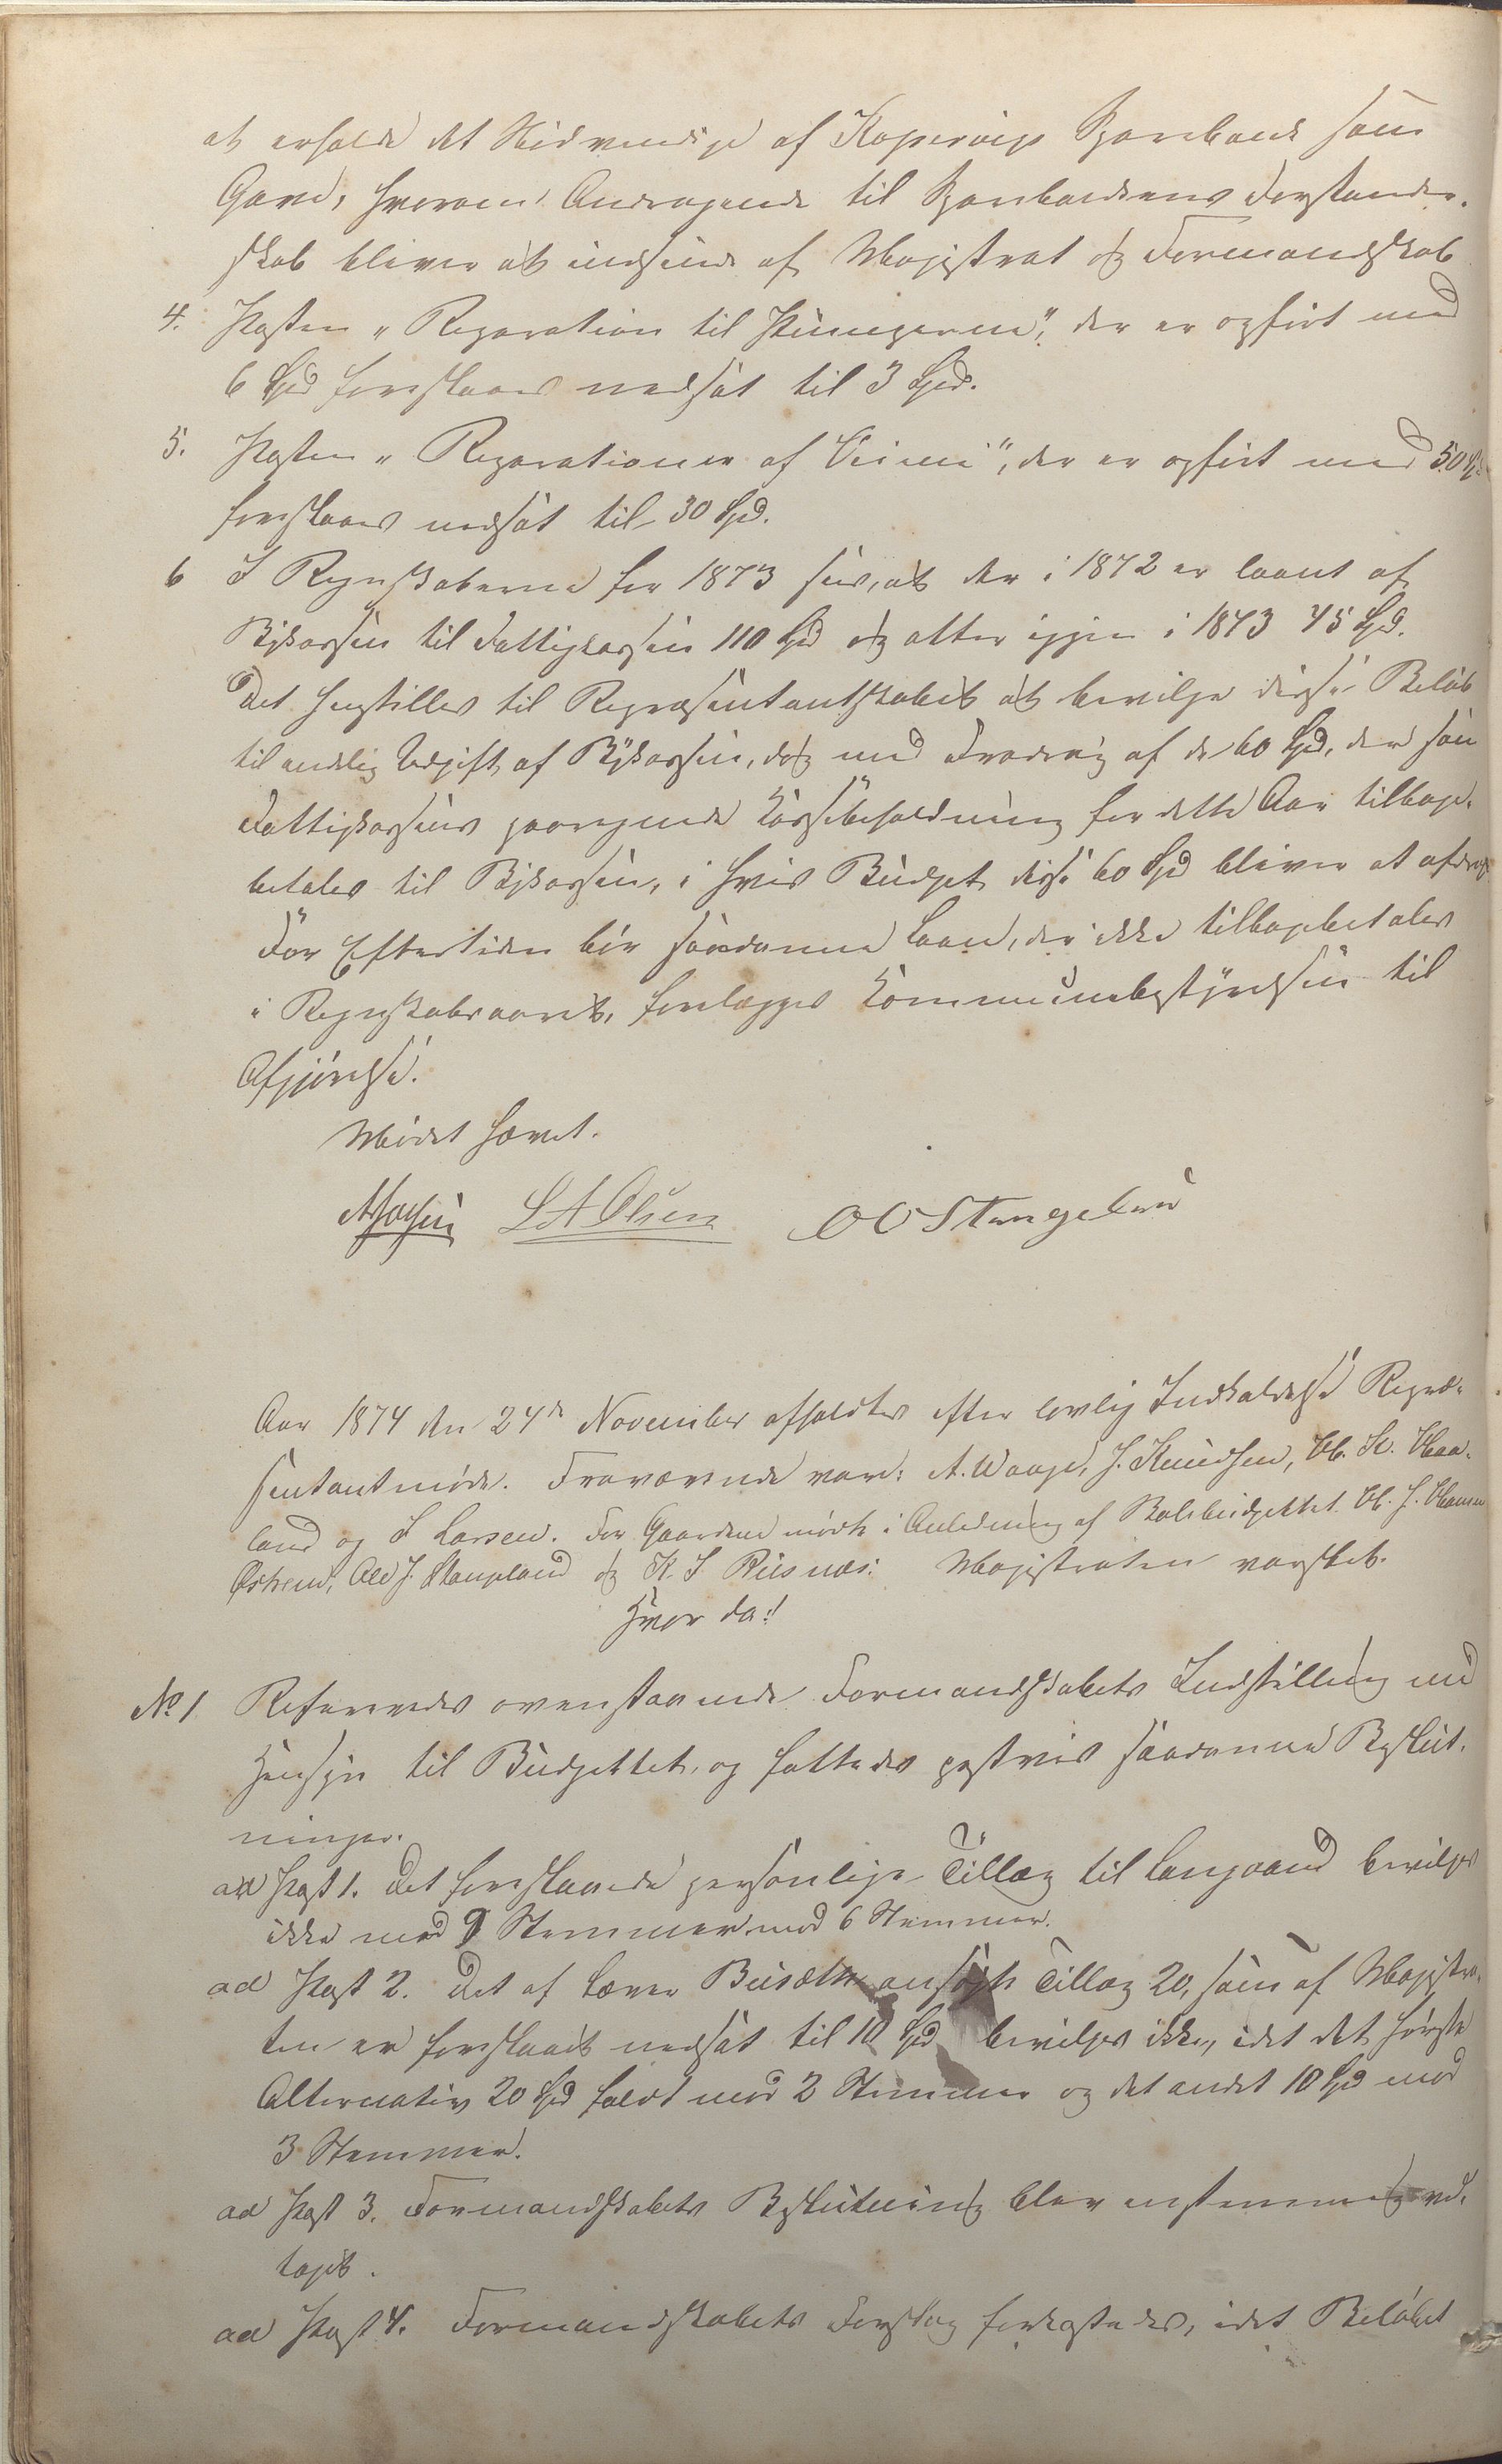 at erholde det Nødvendige af Kopervigs Sparebank som
Gave, hvorom Andragende til Sparebankens Forstander-
skab bliver at indsende af Magistrat og Formandskab
4. Posten „Reparation til Pumperne", der er opført med
6 Spd foreslaaes nedsat til 3 Spd.
5. Posten „Reparationer af Veiene", der er opført med 50 Spd
foreslaaes nedsat til 30 Spd.
6 I Regnskaberne for 1873 sees, at der i 1872 er laant af
Bykassen til Fattigkassen 110 Spd og atter igjen i 1873 45 Spd.
Det henstilles til Repræsentantskabet at bevilge disse Beløb
til endelig Udgift af Bykassen, dog med Fradrag af de 60 Spd, der som
Fattigkassens paaregnede Kassebeholdning for dette Aar tilbage-
betales til Bykassen, i hvis Budget disse 60 Spd bliver at afdrage
For Eftertiden bør saadanne Laan, der ikke tilbagebetales
i Regnskabsaaret, forelægges Kommunebestyrelsen til
Afgjørelse.
Mødet hævet.
L A Olsen O O Stangeland
Aar 1874 den 24de November afholdtes efter lovlig Indkaldelse Repræ-
sentantmøde. Fraværende vare: A. Waage, J. Knudsen,
land og I Larsen. For Gaardene mødte i Anledning af
Østrem, Ole J. Stangeland og K. S. Risnæs. Magistraten
Hvor da:/
No 1 Refereredes ovenstaaende Formandskabets Indstilling med
Hensyn til Budgettet, og fattedes postvis saadanne Beslut-
ninger.
ad Post 1. Det foreslaaede personlige Tillæg til Langaard bevilges
ikke med 9 Stemmer mod 6 Stemmer.
ad Post 2. Det af Lærer ansøgte Tillæg 20, som af Magistra-
ten er foreslaaet nedsat til 10 Spd bevilges ikke, idet det første
Alternativ 20 Spd faldt mod 2 Stemmer og det andet 10 Spd mod
3 Stemmer.
ad Post 3. Formandskabets Beslutning blev enstemmig ved-
taget.
ad Post 4. Formandskabets Forslag forkastedes, idet Beløbet